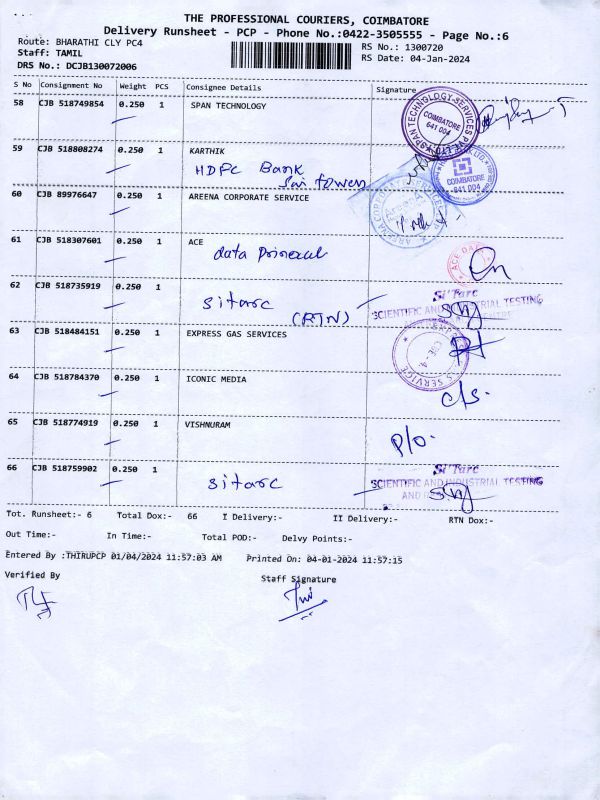 THE PROFESSIONAL COURIERS, COIMBATORE
Delivery Runsheet - PCP - Phone No.:0422-3505555 - Page No.:6
Route: BHARATHI CLY PC4
RS No.: 1300720
Staff: TAMIL
RS Date: 04-Jan-2024
DRS No.: DCJB130072006
S No Consignment No Weight PCS Consignee Details Signature
58 CJB 518749854 0.250 1 SPAN TECHNOLOGY
SPAN TECHNOLOGY SERVICES COIMBATORE 641 004
59 CJB 518808274 0.250 1 KARTHIK
HDFC Bank
Sai towers
COIMBATORE 641 004
60 CJB 89976647 0.250 1 AREENA CORPORATE SERVICE
61 CJB 518307601 0.250 1 ACE
data
ACE DATA
62 CJB 518735919 0.250 1
sitarc
(RTN)
Si'Tarc
SCIENTIFIC AND INDUSTRIAL TESTING
63 CJB 518484151 0.250 1 EXPRESS GAS SERVICES
64 CJB 518784370 0.250 1 ICONIC MEDIA
c/s.
65 CJB 518774919 0.250 1 VISHNURAM
P/O.
66 CJB 518759902 0.250 1
sitarc
Si'Tarc
SCIENTIFIC AND INDUSTRIAL TESTING
Tot. Runsheet:- 6 Total Dox:- 66 I Delivery:- II Delivery:- RTN Dox:-
Out Time:- In Time:- Total POD:- Delvy Points:-
Entered By :THIRUPCP 01/04/2024 11:57:03 AM Printed On: 04-01-2024 11:57:15
Verified By Staff Signature